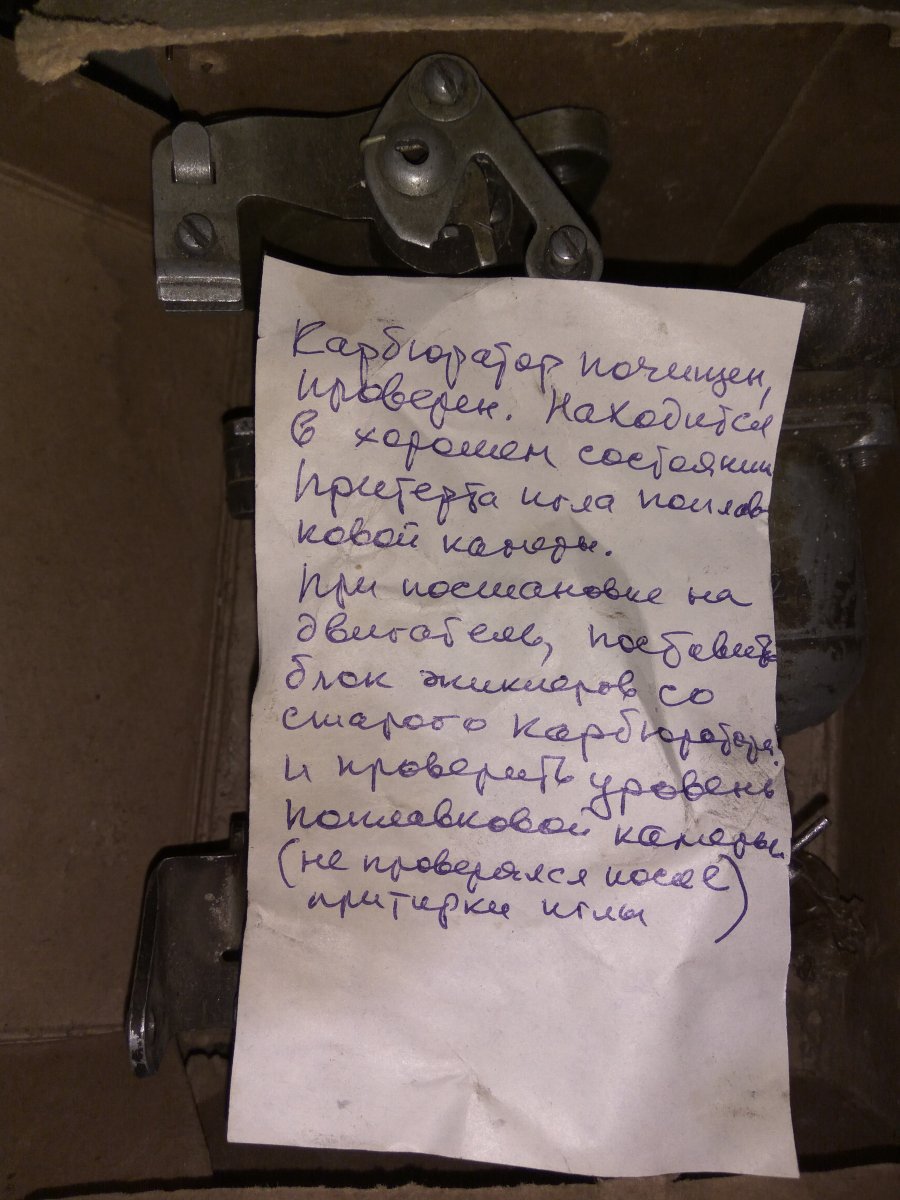 Карбюратор почищен,
проверен. Находится
в хорошем состоянии
Притерта игла поплав
ковой камеры.
При постановке на
двигатель, поставить
блок жиклеров со
старого карбюратора!
и проверить уровень
поплавковой камеры.
(не проверялся после
притирки иглы)